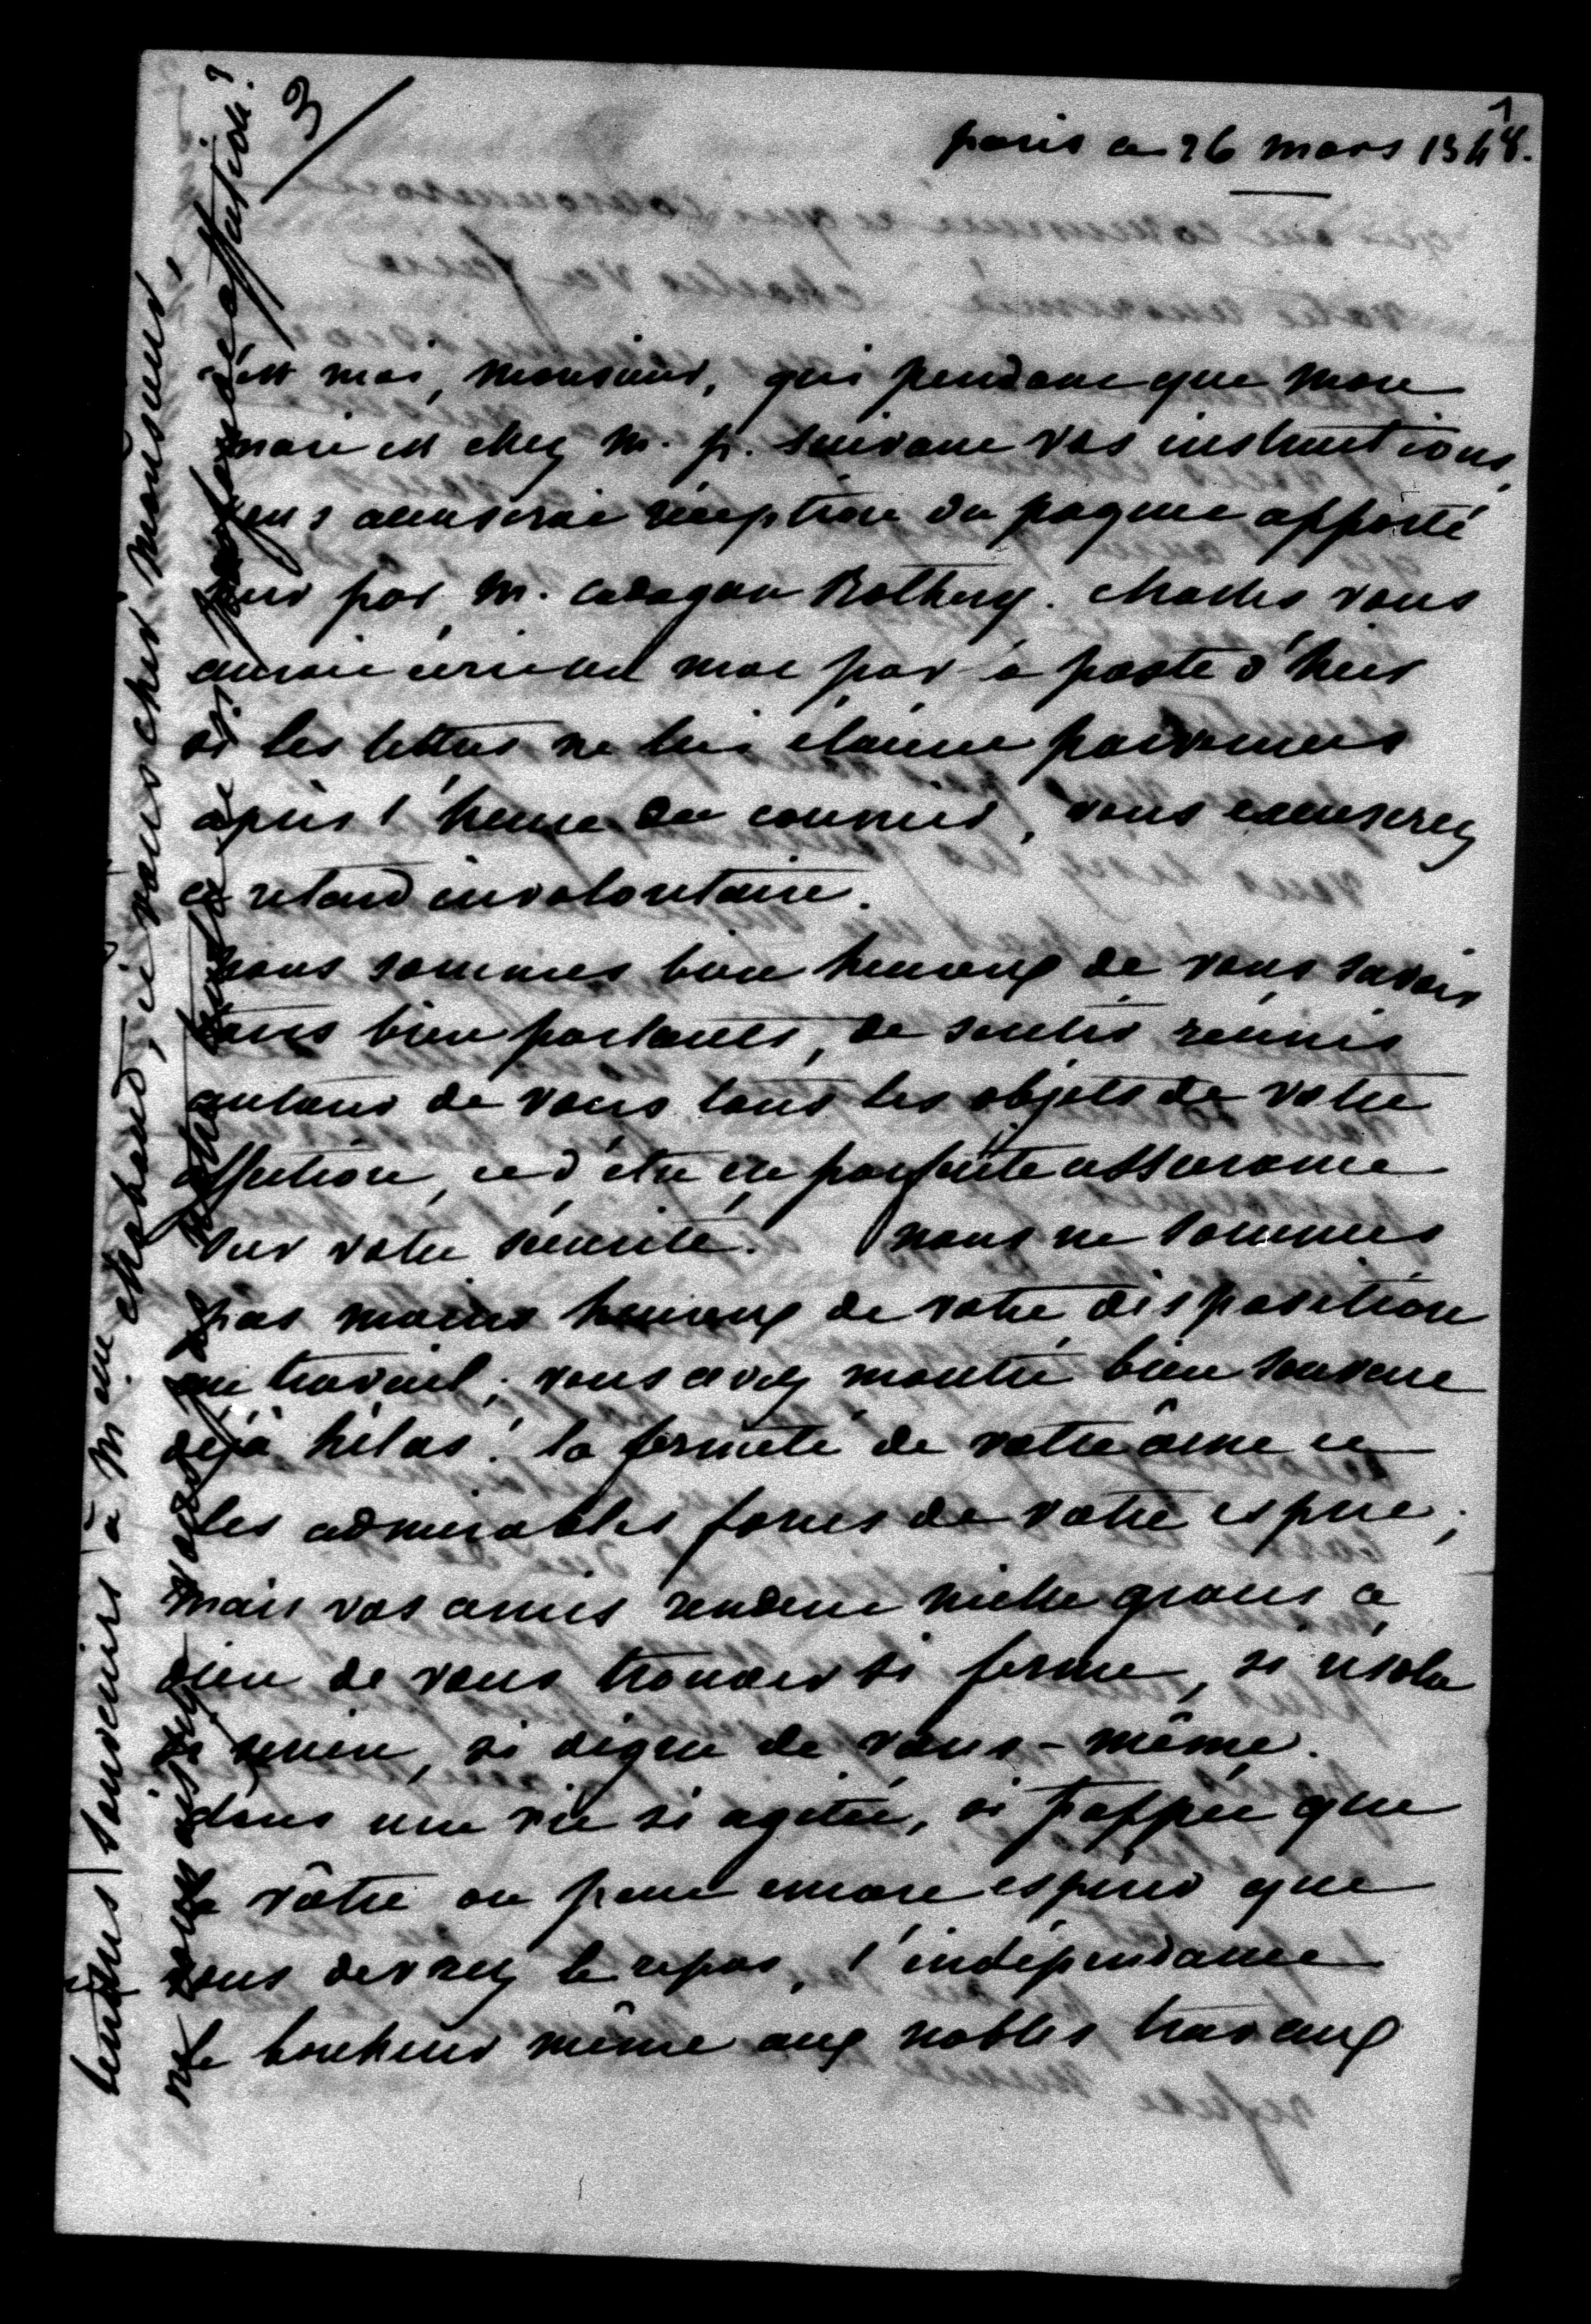 1
3
paris ce 26 mars 1848.
c'est moi, monsieur, qui pendant que mon
mari est chez m. p. suivant vos instructions,
vous accuserai réception du paquet apporté
hier par m. cadogan Rothery. charles vous
aurait écrit un mot par la poste d'hier
si les lettres ne lui étaient parvenues
après l'heure du courrier, vous excuserez
ce retard involontaire.
nous sommes bien heureux de vous savoir
tous bien portants, de sentir réunis
autour de vous tous les objets de votre
affection, et d'être en parfaite assurance
sur votre sécurité. nous ne sommes
pas moins heureux de votre disposition
au travail; vous avez montré bien souvent
déjà hélas! la fermeté de votre âme et
les admirables forces de votre esprit;
mais vos amis rendent mille graces à
dieu de vous trouver si ferme, si résolu
si serein, si digne de vous-même.
dans une vie si agitée, si frappée que
la vôtre on peut encore espérer que
vous devrez le repos, l'indépendance
le bonheur même aux nobles travaux
tendres souvenirs à Melle chabaud, et vous cher monsieur,
ne connaissez vous pas notre si profonde affection?